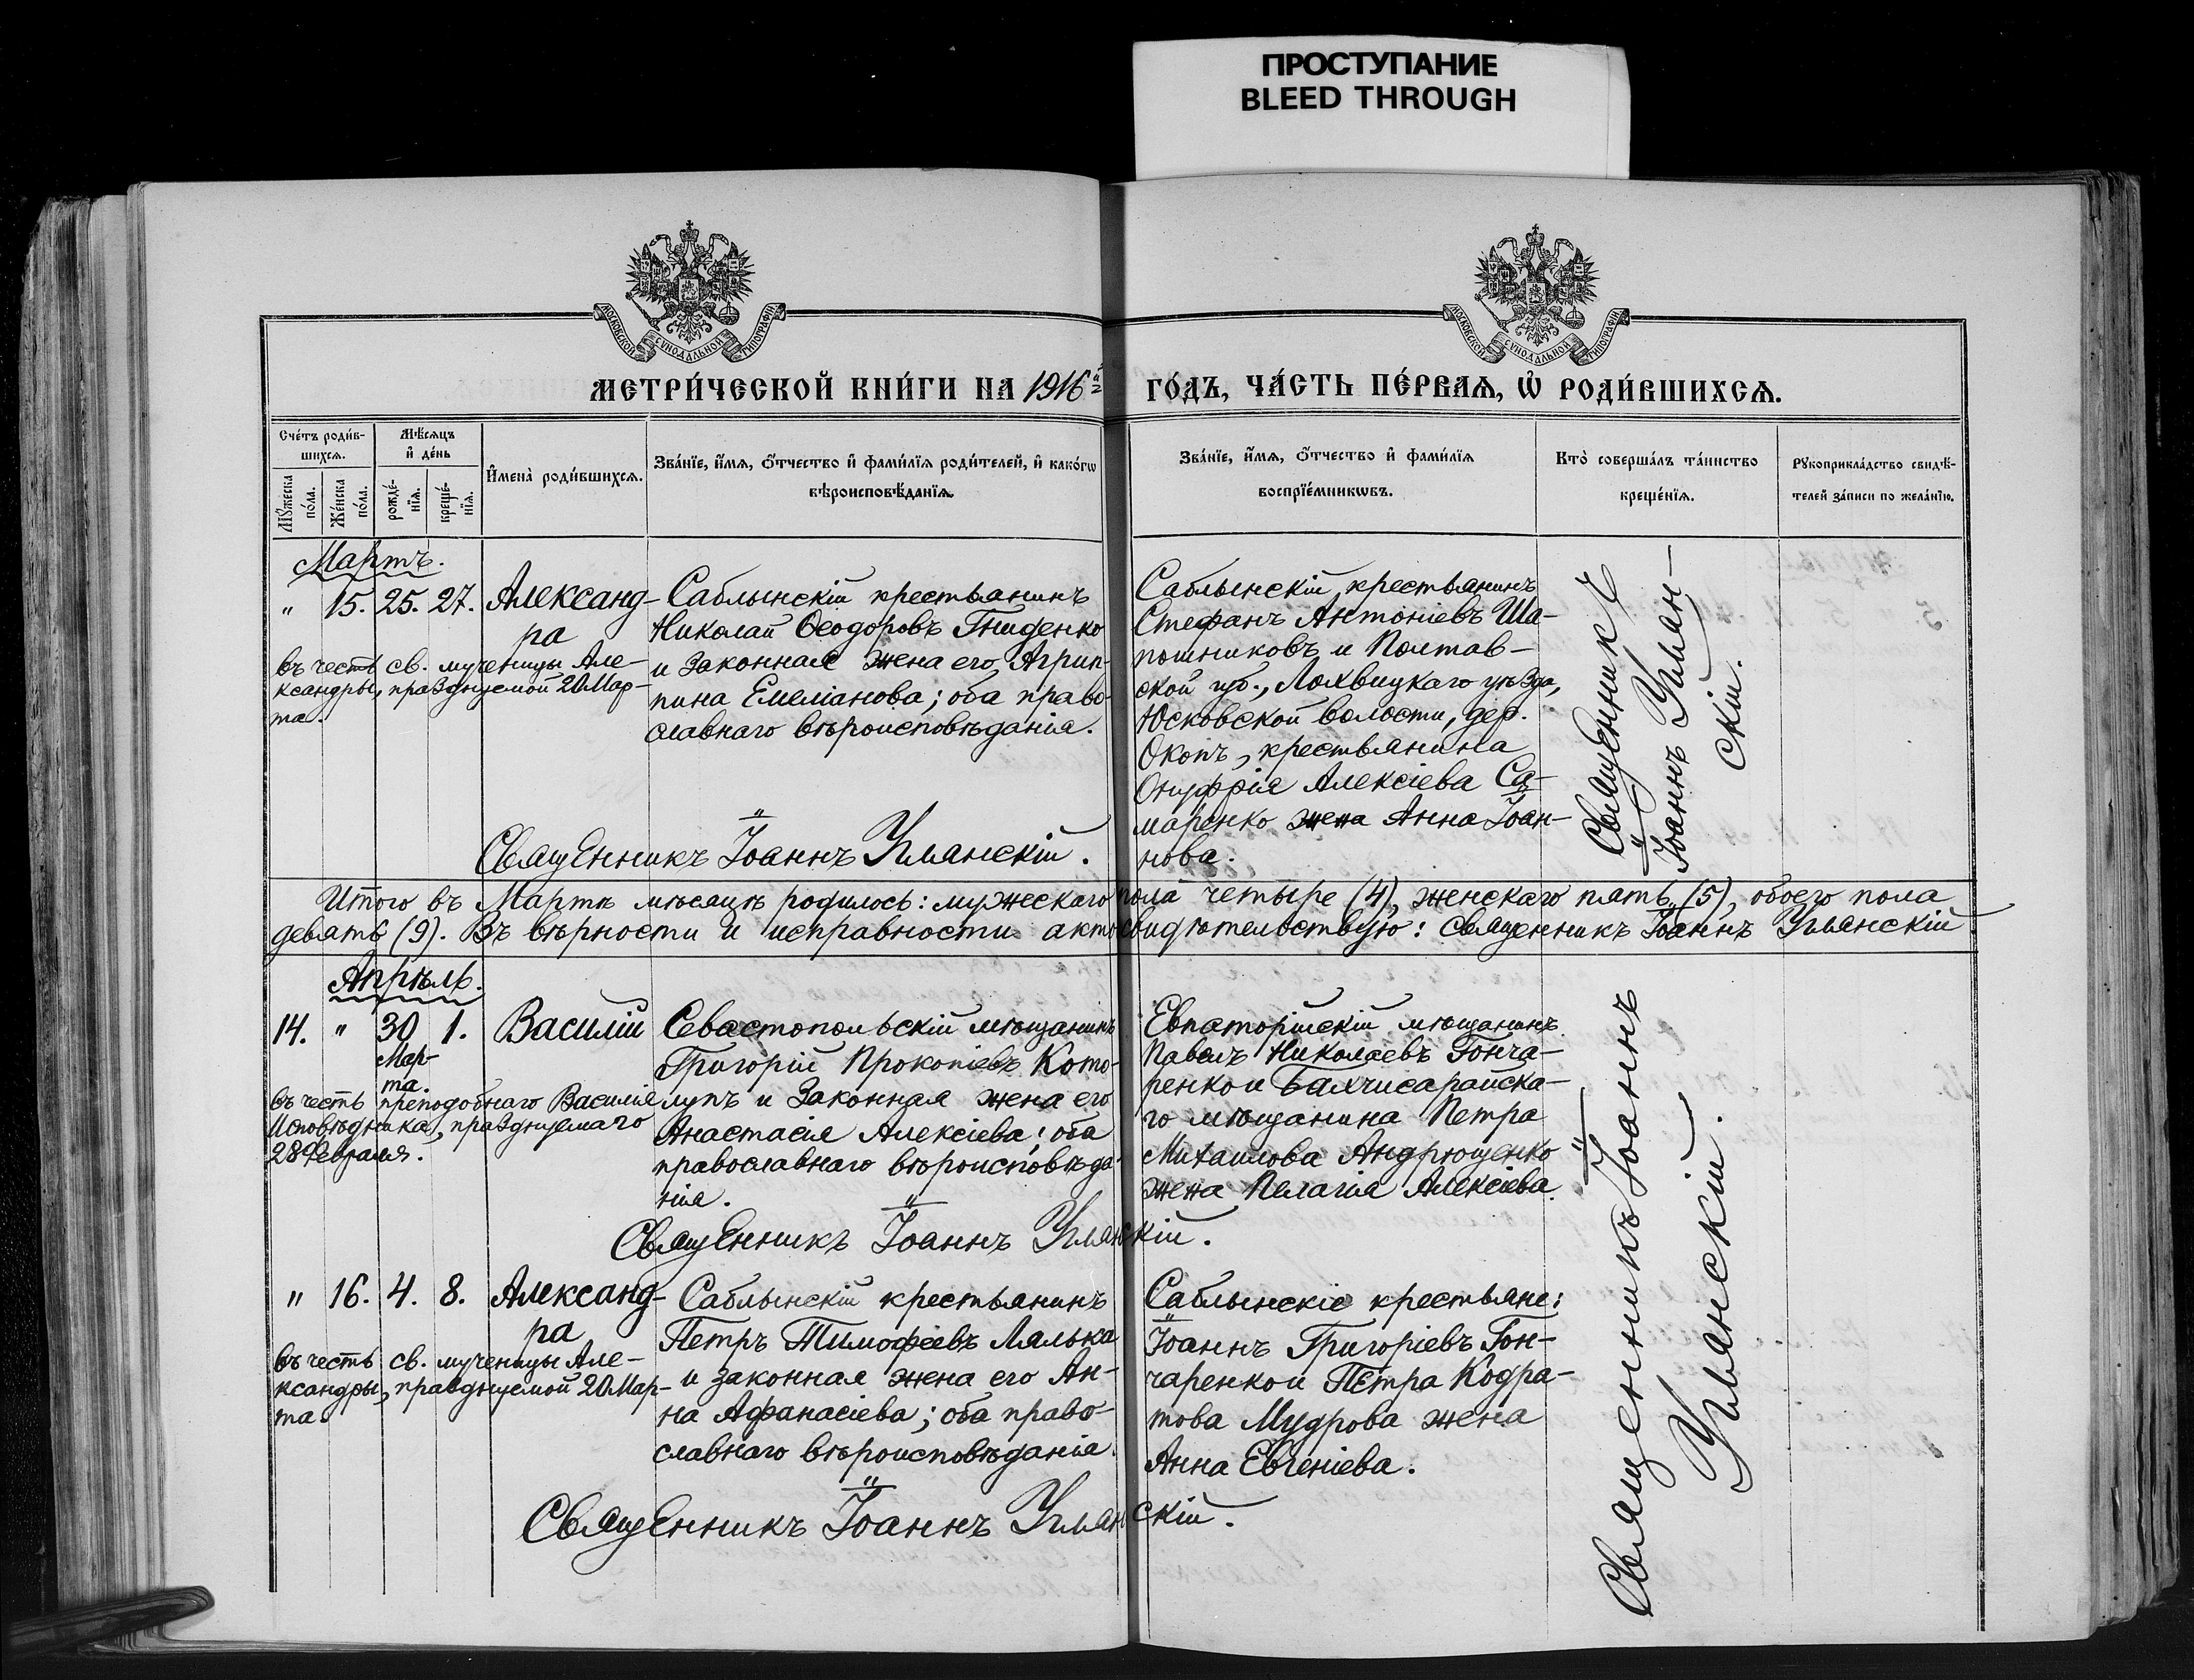 ПРОСТУПАНИЕ
BLEED THROUGH
МОСКОВСКОЙ СѴНОДАЛЬНОЙ ТИПОГРАФІИ
МОСКОВСКОЙ СѴНОДАЛЬНОЙ ТИПОГРАФІИ
МЕТРИ́ЧЕСКОЙ КНИ́ГИ НА 1916й ГО́ДЪ, ЧА́СТЬ ПЕ́РВАѦ, Ѡ РОДИ́ВШИХСѦ.
Сче́тъ роди́в-
шихсѧ.
Мꙋ́жеска
по́ла.
Же́нска
по́ла.
Мѣ́сѧцъ
и҆ де́нь
рожде́-
нїѧ.
креще́-
нїѧ.
И҆мена̀ роди́вшихсѧ.
Зва́нїе, и҆́мѧ, ѻ҆́тчество и҆ фами́лїѧ роди́телей, и҆ како́гѡ
вѣроисповѣ́данїѧ.
Зва́нїе, и҆́мѧ, ѻ҆́тчество и҆ фами́лїѧ
воспрїе́мникѡвъ.
Кто̀ соверша́лъ та́инство
креще́нїѧ.
Рꙋкоприкла́дство свидѣ́-
телей за́писи по жела́нїю.
Мартъ.
" 15. 25. 27. Александ-
ра
въ честь св. мученицы Але-
ксандры, празднуемой 20 Мар-
та.
Саблынскій крестьянинъ
Николай Ѳеодоровъ Гниденко
и законная жена его Агрип-
пина Емеліанова; оба право-
славнаго вѣроисповѣданія.
Священникъ Іоаннъ Уманскій.
Саблынскій крестьянинъ
Стефанъ Антоніевъ Ша-
пошниковъ и Полтав-
ской губ., Лохвицкаго уѣзда,
Юсковской волости, дер.
Окопъ, крестьянина
Онуфрія Алексіева Са-
маренко жена Анна Іоан-
нова.
Священникъ
Іоаннъ Уман-
скій.
Итого въ Мартѣ мѣсяцѣ родилось: мужескаго пола четыре (4), женскаго пять (5), обоего пола
девять (9). Въ вѣрности и исправности акто свидѣтельствую: Священникъ Іоаннъ Уманскій
Апрѣль.
14. " 30 1. Василій
Мар-
та.
въ честь преподобнаго Василія
Исповѣдника, празднуемаго
28 Февраля.
Севастопольскій мѣщанинъ
Григорій Прокопіевъ Кото-
лупъ и законная жена его
Анастасія Алексіева; оба
православнаго вѣроисповѣда-
нія.
Священникъ Іоаннъ Уманскій.
Евпаторійскій мѣщанинъ
Павелъ Николаевъ Гонча-
ренко и Бахчисарайска-
го мѣщанина Петра
Михаилова Андрющенко
жена Пелагія Алексіева.
" 16. 4. 8. Александ-
ра
въ честь св. мученицы Але-
ксандры, празднуемой 20 Мар-
та.
Саблынскій крестьянинъ
Петръ Тимофеевъ Лялька
и законная жена его Ан-
на Афанасіева; оба право-
славнаго вѣроисповѣданія.
Священникъ Іоаннъ Уманскій.
Саблынскіе крестьяне:
Іоаннъ Григоріевъ Гон-
чаренко и Петра Кодра-
това Мудрова жена
Анна Евгеніева.
Священникъ Іоаннъ
Уманскій.